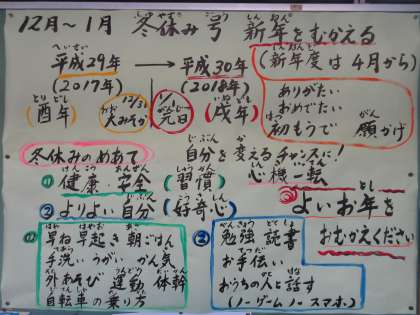 12月～1月 冬休み号 新年をむかえる
平成29年 → 平成30年 (新年度は4月から)
(2017年) (2018年)
(酉年) 12/31 大みそか 1/1 元日 (戌年)
ありがたい
おめでたい
初もうで 願かけ
冬休みのめあて 自分を変えるチャンスに!
① 健康・安全 (習慣) 心機一転
② よりよい自分 (好奇心) よいお年を
おむかえください
① 早ね 早起き 朝ごはん
手洗い うがい かん気
外あそび 運動 体幹
自転車の乗り方
② 勉強 読書
お手伝い
おうちの人と話す
(ノーゲーム ノースマホ)